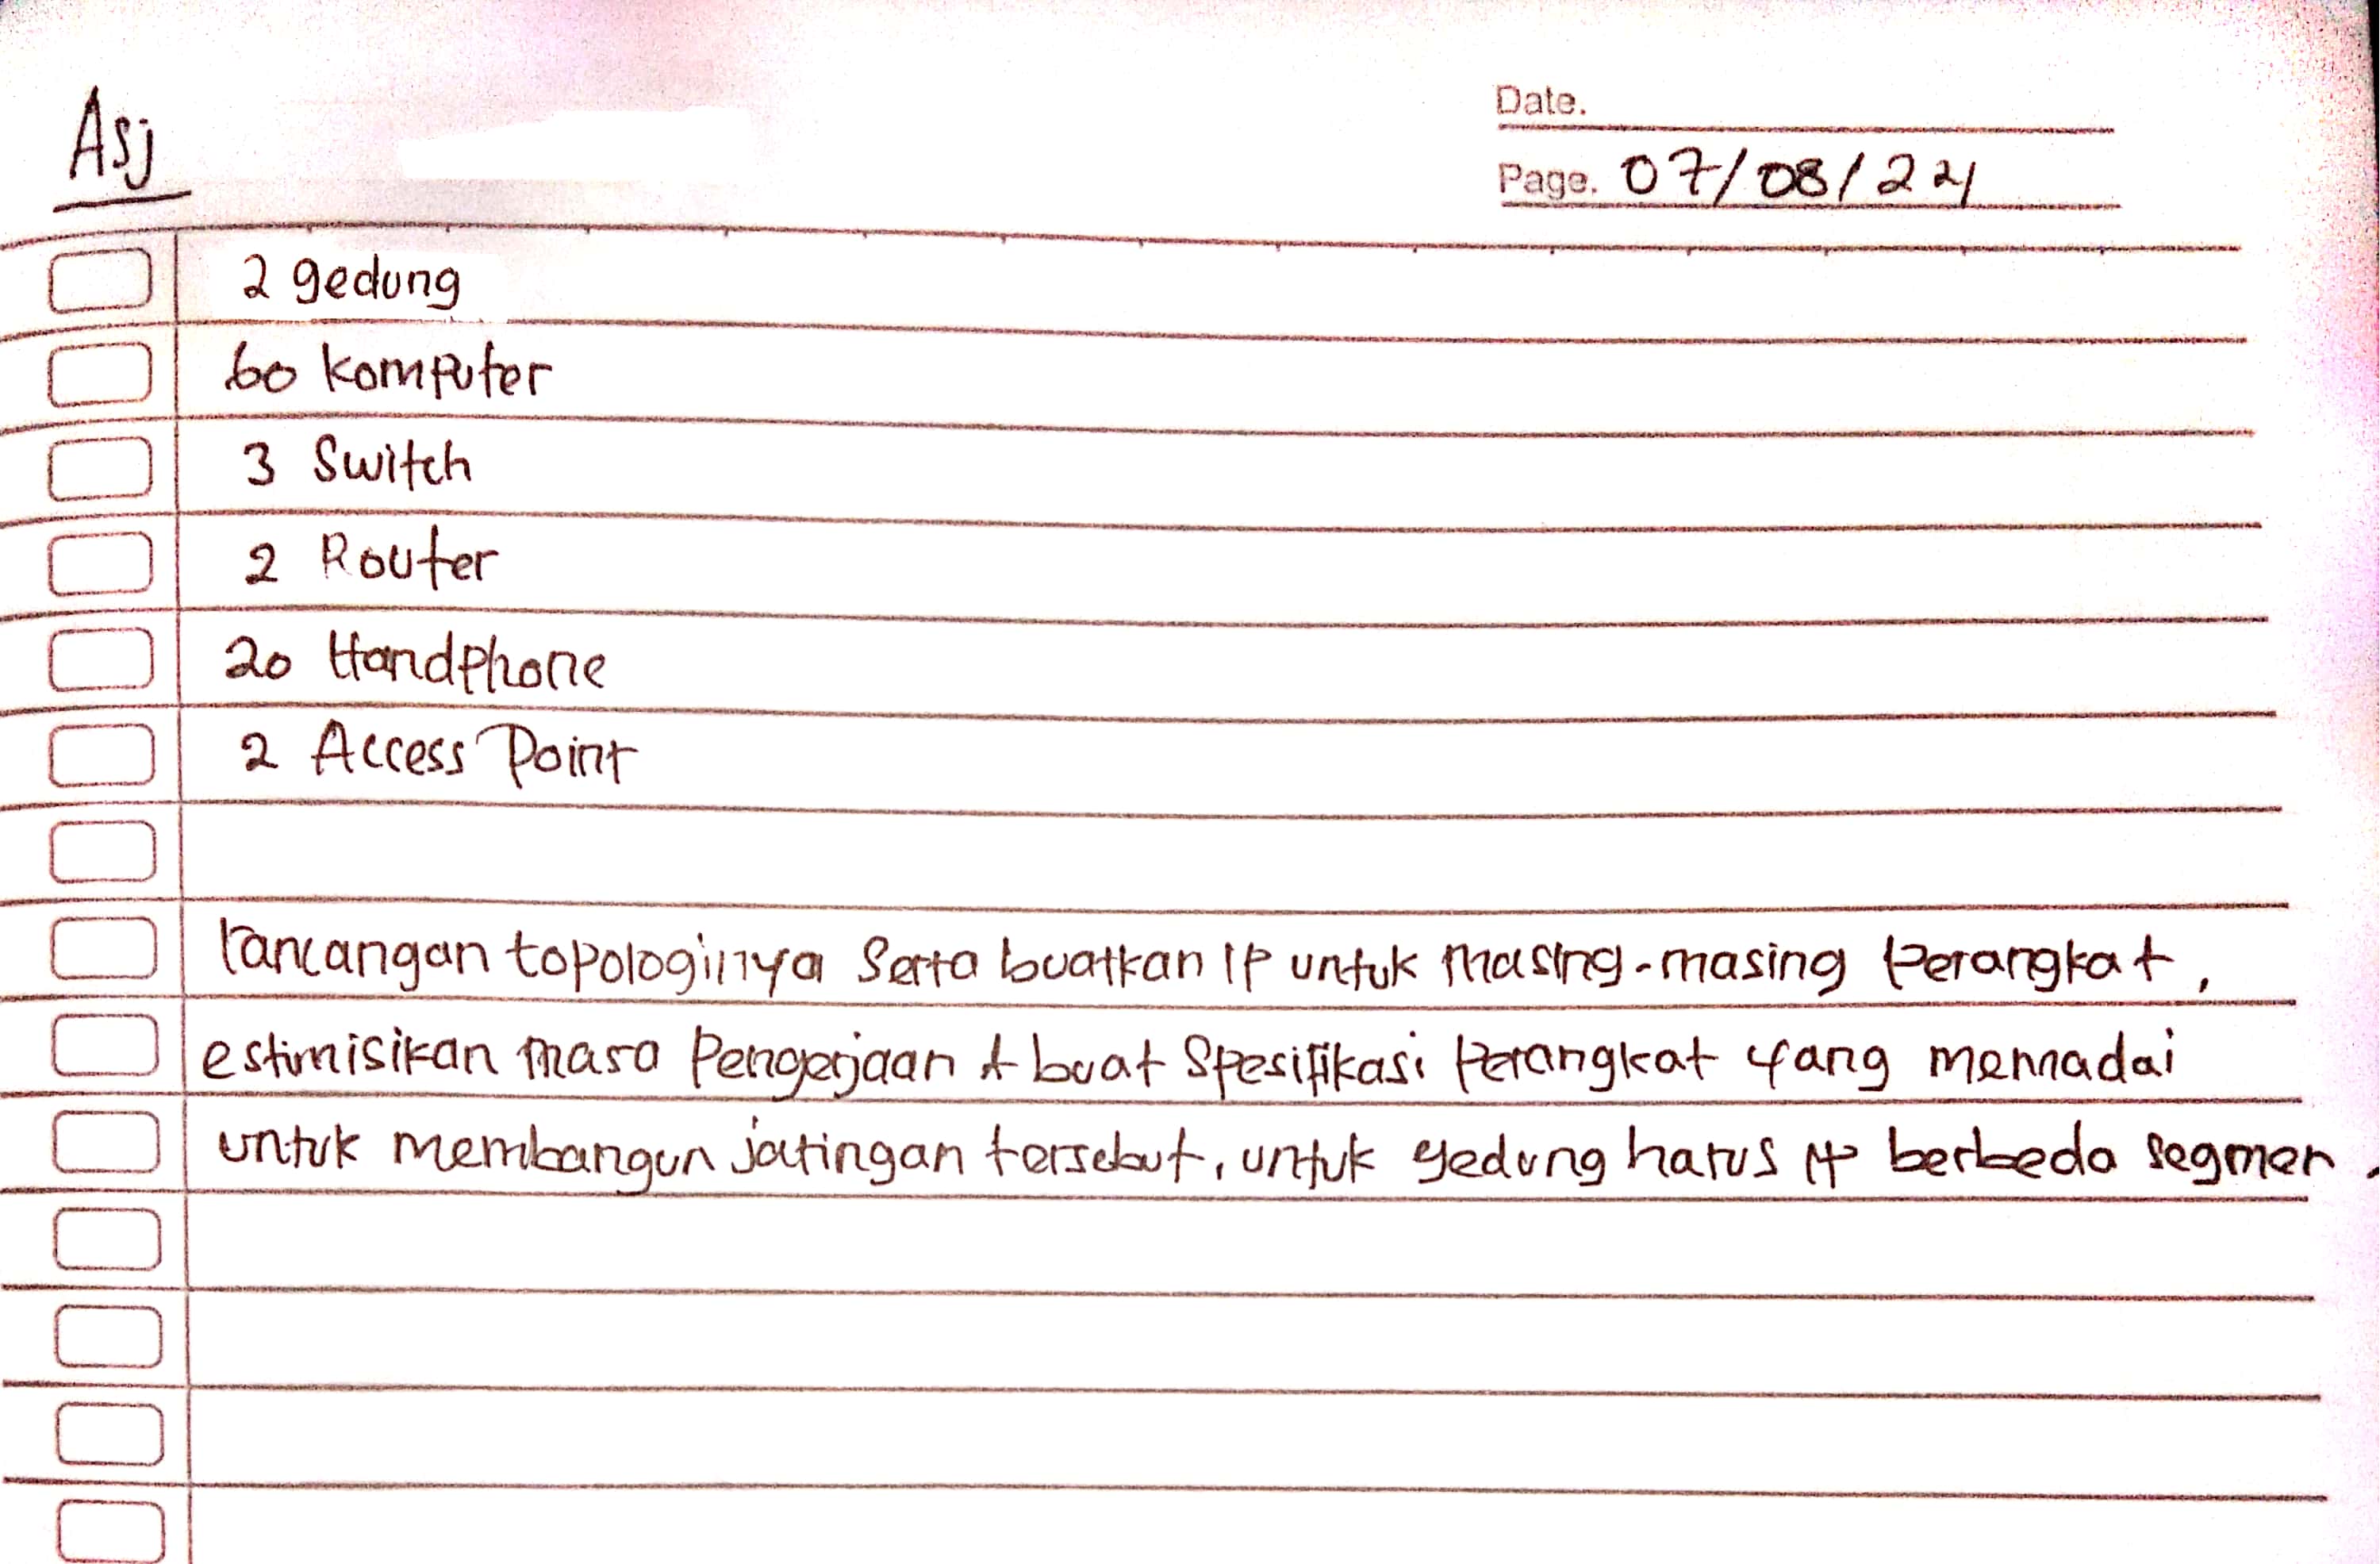 Asj
Date.
Page. 07/08/24
2 gedung
60 Komputer
3 Switch
2 Router
20 Handphone
2 Access Point
rancangan topologinya Serta buatkan IP untuk masing-masing Perangkat,
estimisikan masa Pengerjaan & buat Spesifikasi Perangkat yang memadai
untuk membangun jaringan tersebut, untuk gedung harus IP berbeda segmen.